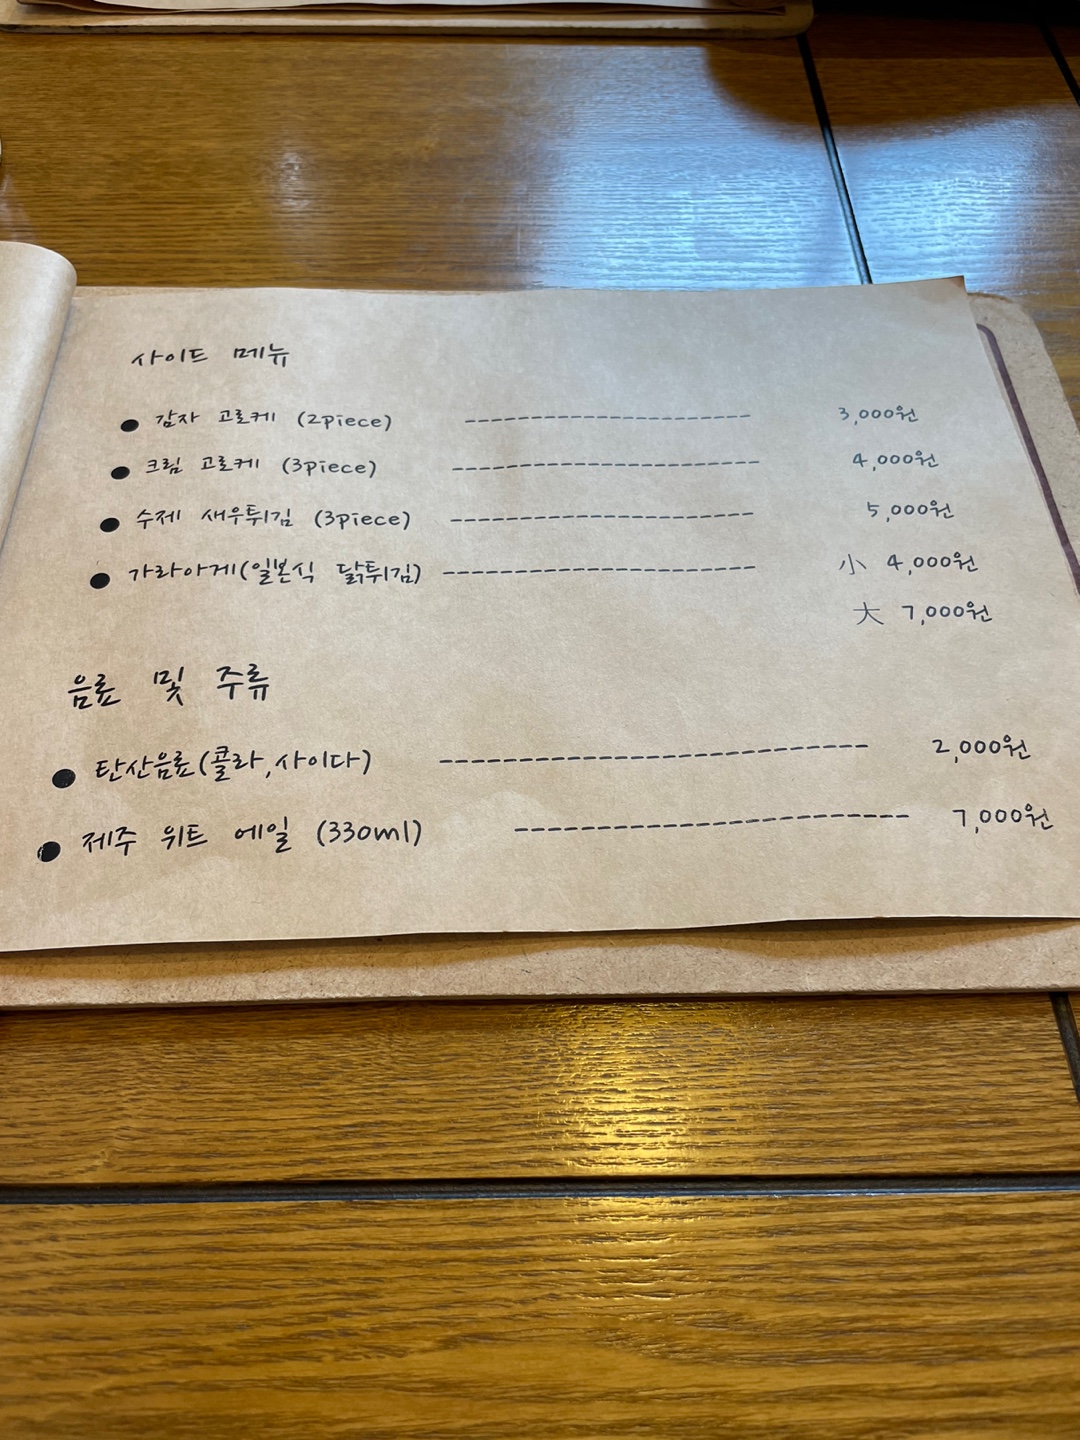 사이드 메뉴
● 감자 고로케 (2piece) -------------------- 3,000원
● 크림 고로케 (3piece) -------------------- 4,000원
● 수제 새우튀김 (3piece) -------------------- 5,000원
● 가라아게(일본식 닭튀김) -------------------- 小 4,000원
大 7,000원
음료 및 주류
● 탄산음료(콜라,사이다) -------------------- 2,000원
● 제주 위트 에일 (330ml) -------------------- 7,000원